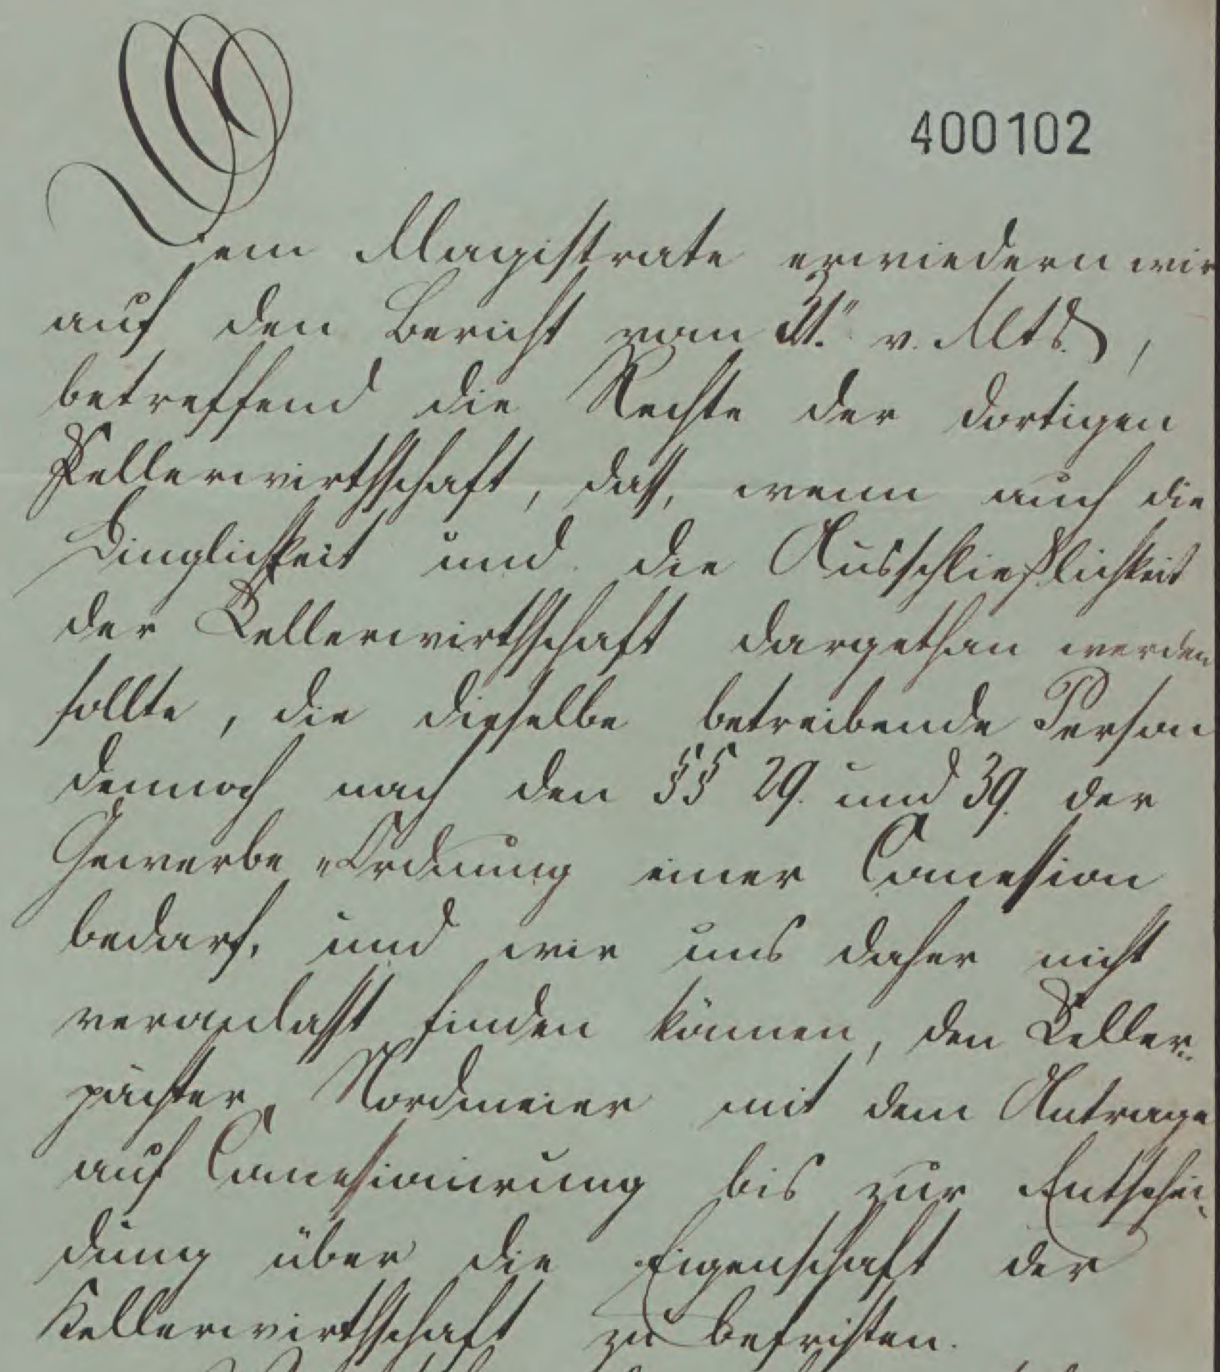 400102
Dem Magistrate erwiedern wir
auf den Bericht vom 21t. v. Mts.,
betreffend die Rechte der dortigen
Kellerwirthschaft, daß, wenn auch die
Dinglichkeit und die Ausschließlichkeit
der Kellerwirthschaft dargethan werden
sollte, die dieselbe betreibende Person
dennoch nach den §§ 29. und 39. der
Gewerbe-Ordnung einer Concession
bedarf, und wir uns daher nicht
veranlaßt finden können, den Keller-
pächter Nordmeier mit dem Antrage
auf Concessionirung bis zur Entschei-
dung über die Eigenschaft der
Kellerwirthschaft zu befristen.